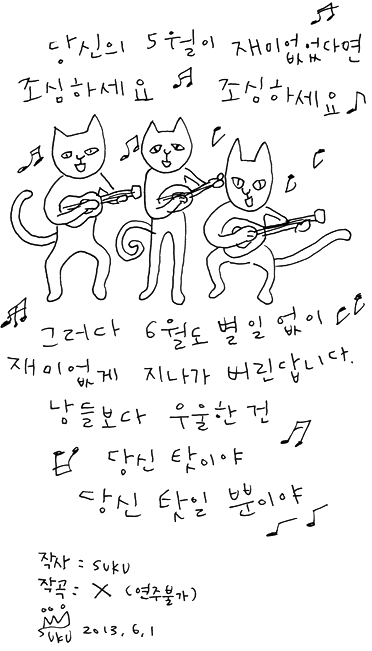 당신의 5월이 재미없었다면
조심하세요 조심하세요
그러다 6월도 별일 없이
재미없게 지나가 버린답니다.
남들보다 우울한 건
당신 탓이야
당신 탓일 뿐이야
작사 : SUKU
작곡 : X (연주불가)
SUKU 2013.6.1